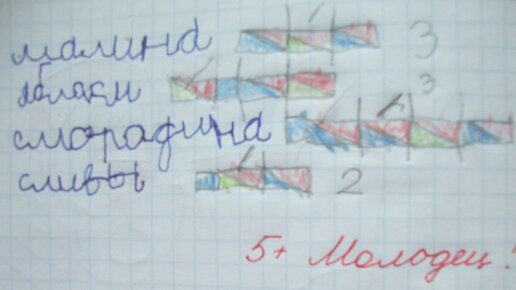 малина 3
яблоки 3
смородина
сливы 2
5+ Молодец!